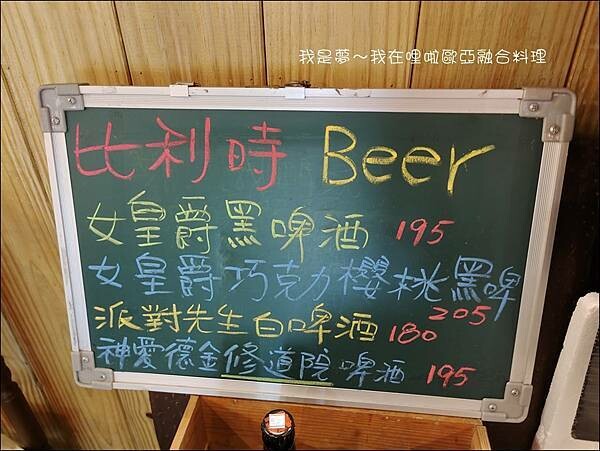 我是夢～我在哩啦歐亞融合料理
比利時 Beer
女皇爵黑啤酒 195
女皇爵巧克力櫻桃黑啤 205
派對先生白啤酒 180
神愛德金修道院啤酒 195